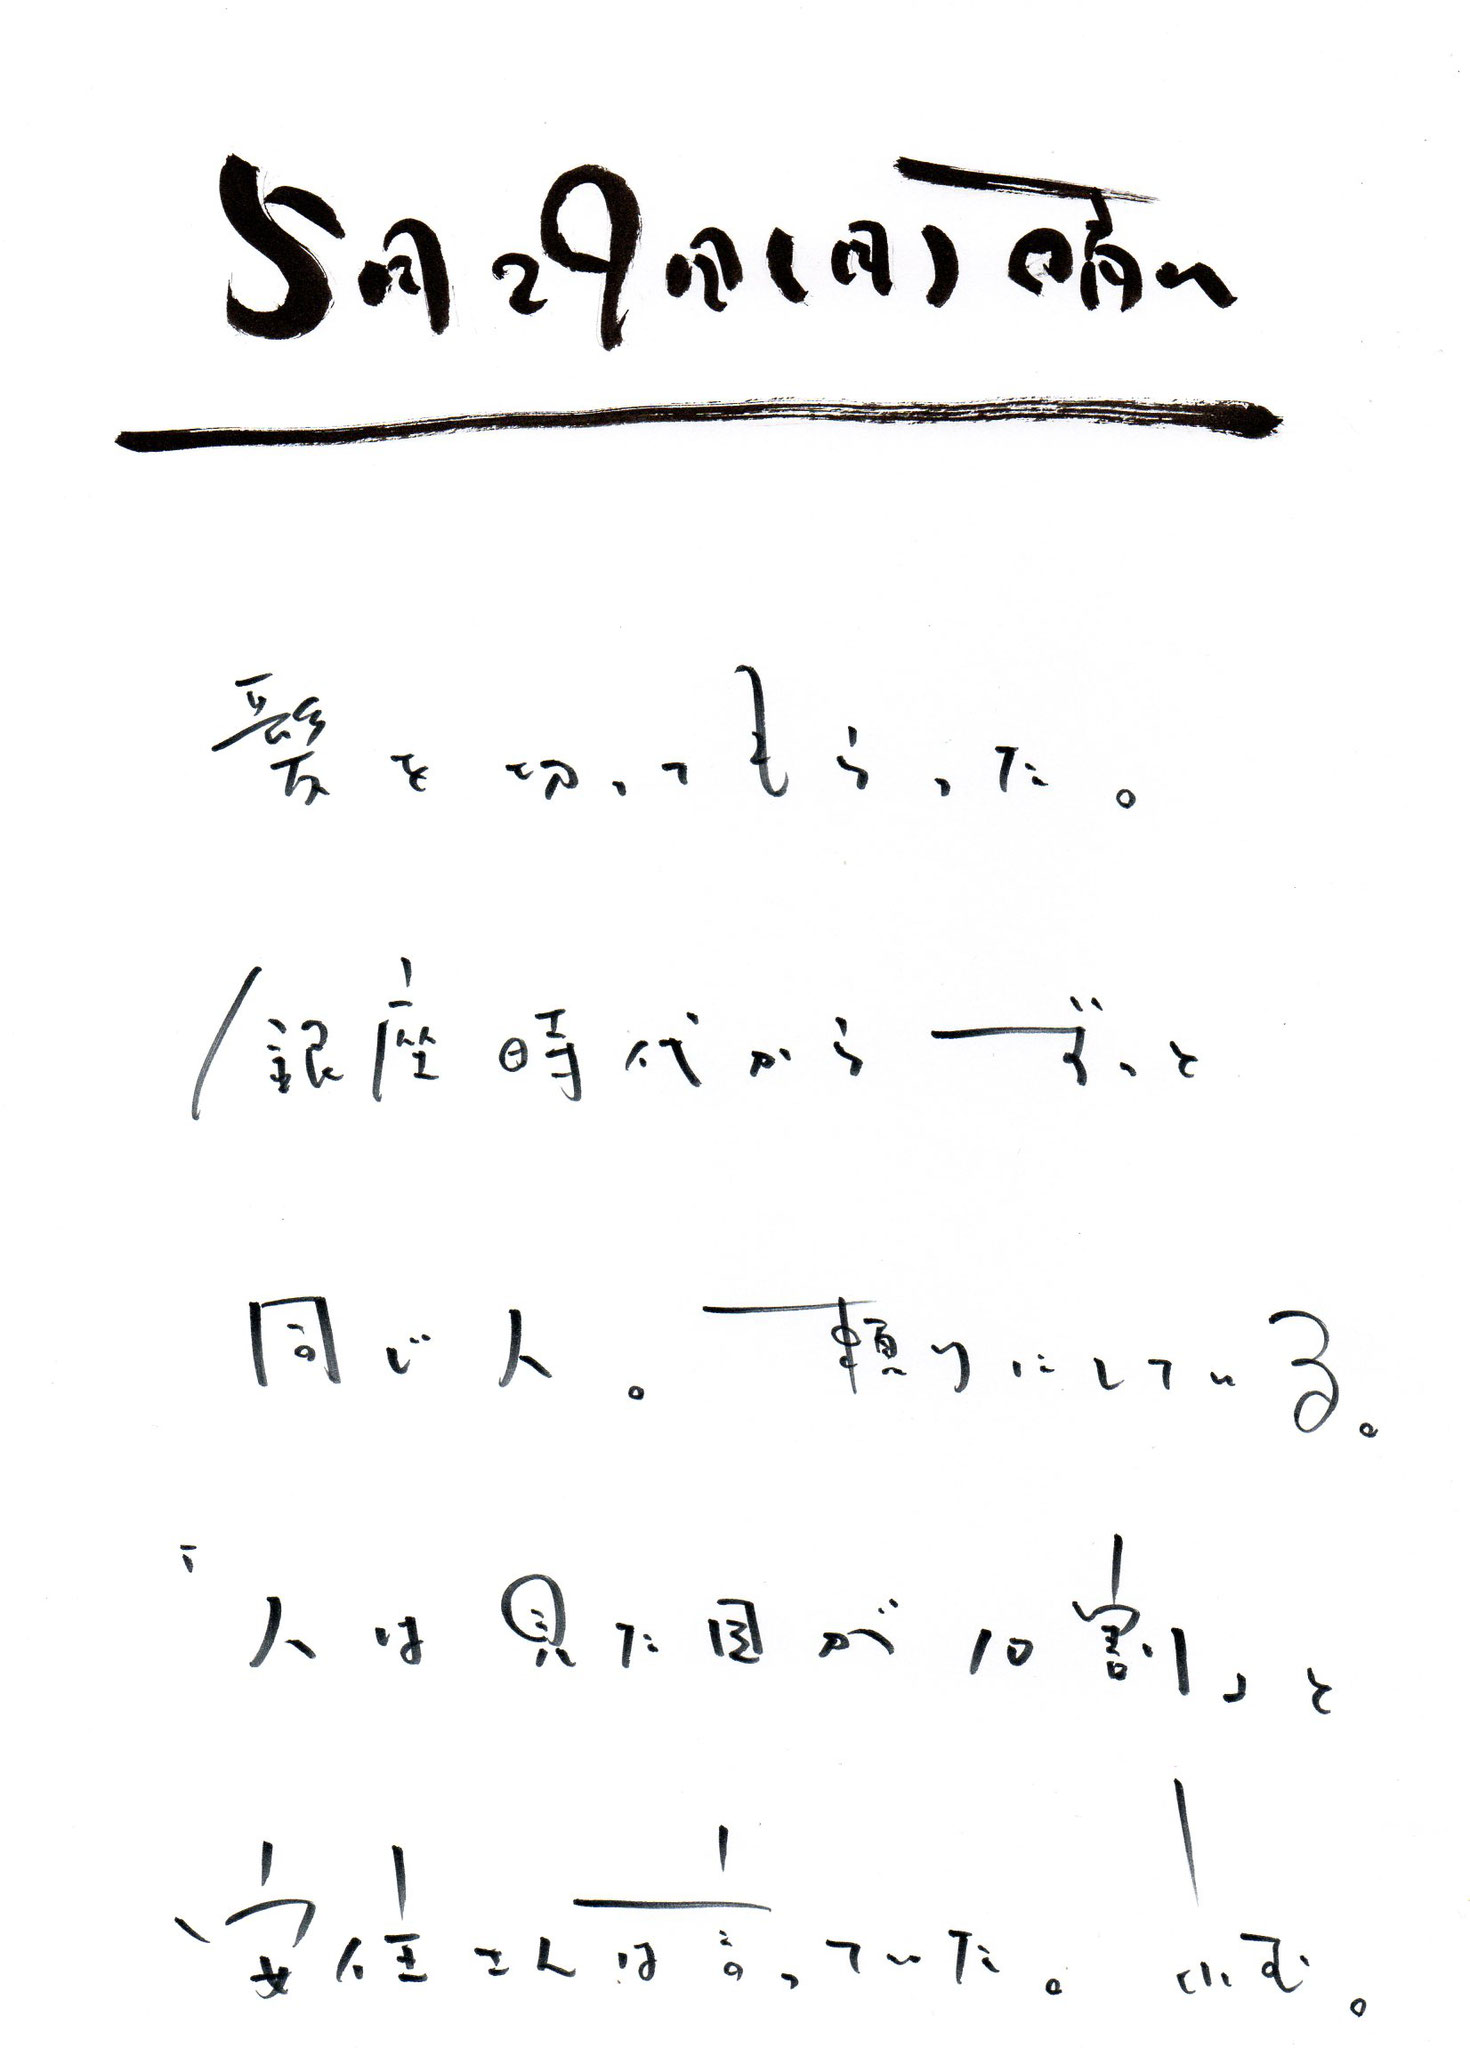 5月29日(月)晴れ
髪を切ってもらった。
銀座時代からずっと
同じ人。頼りにしている。
「人は見た目が10割」と
安住さんは言っていた。